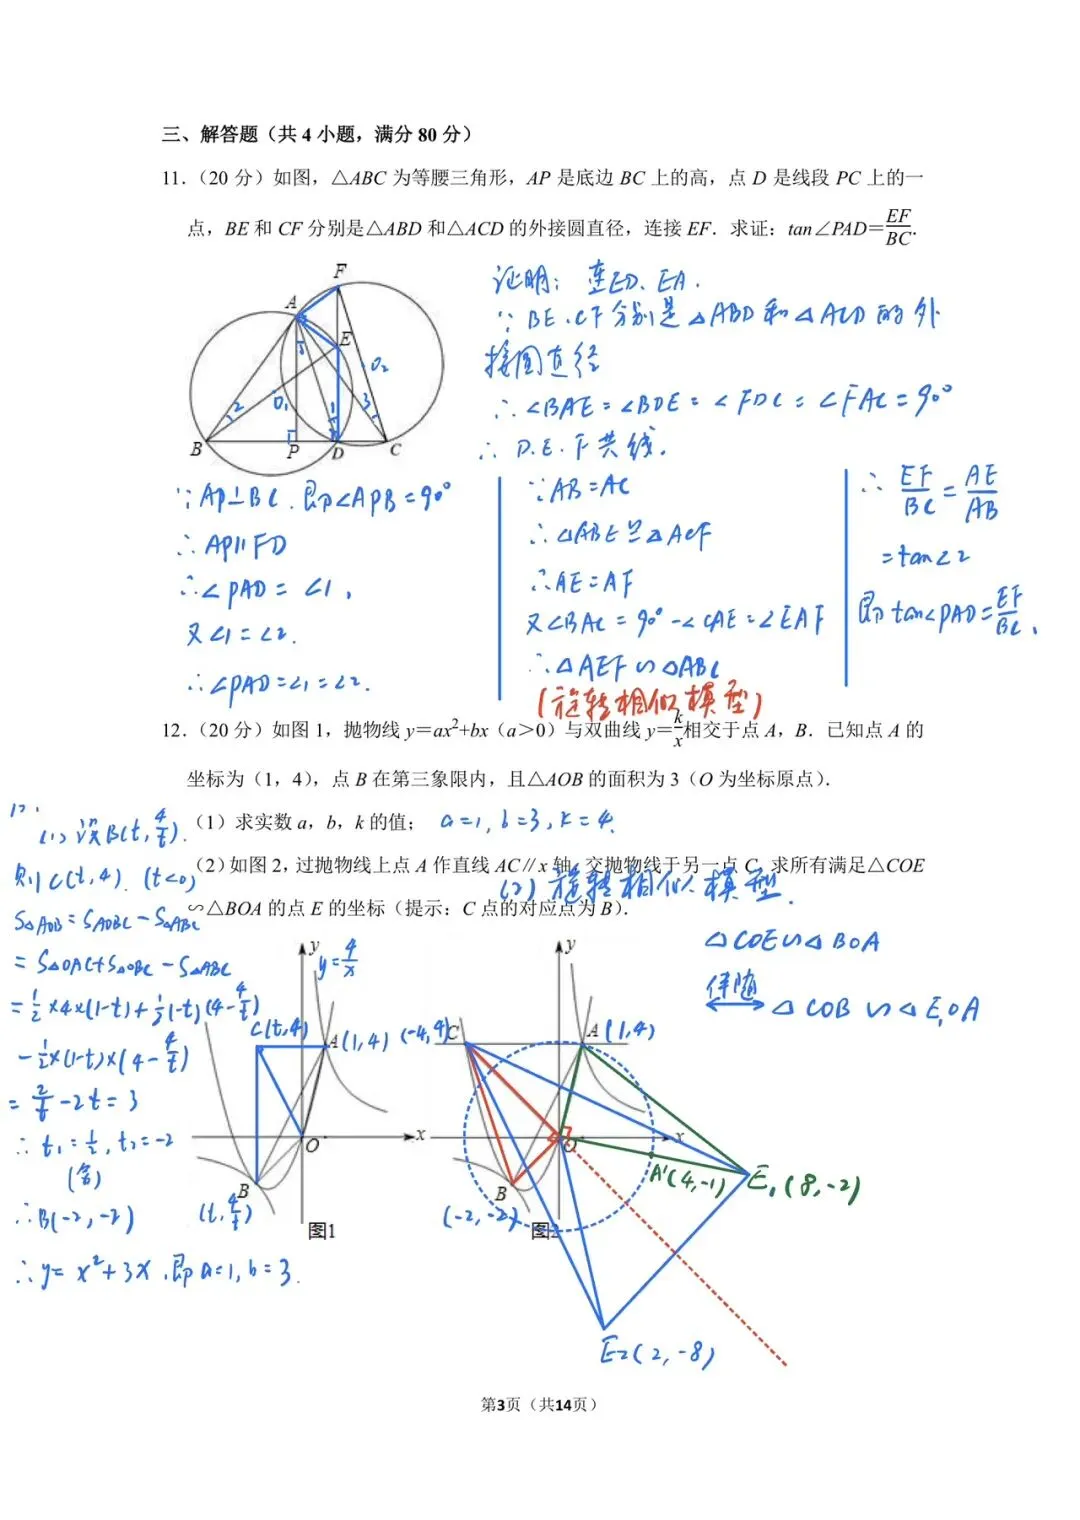 三、解答题（共 4 小题，满分 80 分）
11.（20 分）如图，△ABC 为等腰三角形，AP 是底边 BC 上的高，点 D 是线段 PC 上的一
点，BE 和 CF 分别是△ABD 和△ACD 的外接圆直径，连接 EF．求证：tan∠PAD=EF/BC．
F
A
E
O₂
O₁
2
3
1
B
P
D
C
证明：连ED、EA.
∵BE、CF分别是△ABD和△ACD的外
接圆直径
∴∠BAE=∠BDE=∠FDC=∠FAC=90°
∴D.E.F共线.
∵AP⊥BC.即∠APB=90°
∴AP∥FD
∴∠PAD=∠1，
又∠1=∠2.
∴∠PAD=∠1=∠2.
∵AB=AC
∴△ABE≌△ACF
∴AE=AF
又∠BAC=90°-∠CAE=∠EAF
∴△AEF∽△ABC
(旋转相似模型)
∴EF/BC=AE/AB
=tan∠2
即tan∠PAD=EF/BC.
12.（20 分）如图 1，抛物线 y=ax²+bx（a＞0）与双曲线 y=k/x相交于点 A，B．已知点 A 的
坐标为（1，4），点 B 在第三象限内，且△AOB 的面积为 3（O 为坐标原点）．
（1）求实数 a，b，k 的值；
a=1, b=3, k=4.
（2）如图 2，过抛物线上点 A 作直线 AC∥x 轴，交抛物线于另一点 C，求所有满足△COE
∽△BOA 的点 E 的坐标（提示：C 点的对应点为 B）．
12.
(1) 设B(t, 4/t).
则C(t,4). (t<0)
S△AOB=SAOBC-S△ABC
=S△OAC+S△OBC-S△ABC
=1/2×4×(1-t)+1/2(-t)(4-4/t)
-1/2×(1-t)×(4-4/t)
=2/t-2t=3
∴t₁=1/2, t₂=-2
(舍)
∴B(-2,-2)
∴y=x²+3x，即a=1, b=3.
y
y=4/x
C(t,4)
A(1,4)
x
O
B
(t,4/t)
图1
(2) 旋转相似模型.
△COE∽△BOA
伴随
△COB∽△E₁OA
y
(-4,4)
C
A(1,4)
x
O
A'(4,-1)
E₁(8,-2)
B
(-2,-2)
图2
E₂(2,-8)
第3页（共14页）